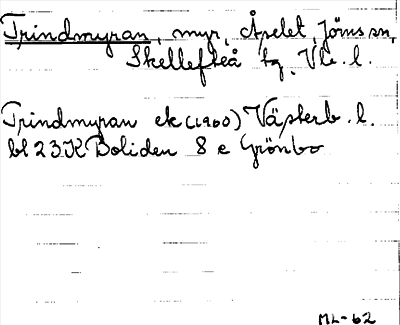 Trindmyran, myr, Åpelet, Jörns sn,
Skellefteå tg, Vb. l.
Trindmyran ek (1960) Västerb. l.
bl 23K Boliden 8 e Grönbo
ML-62